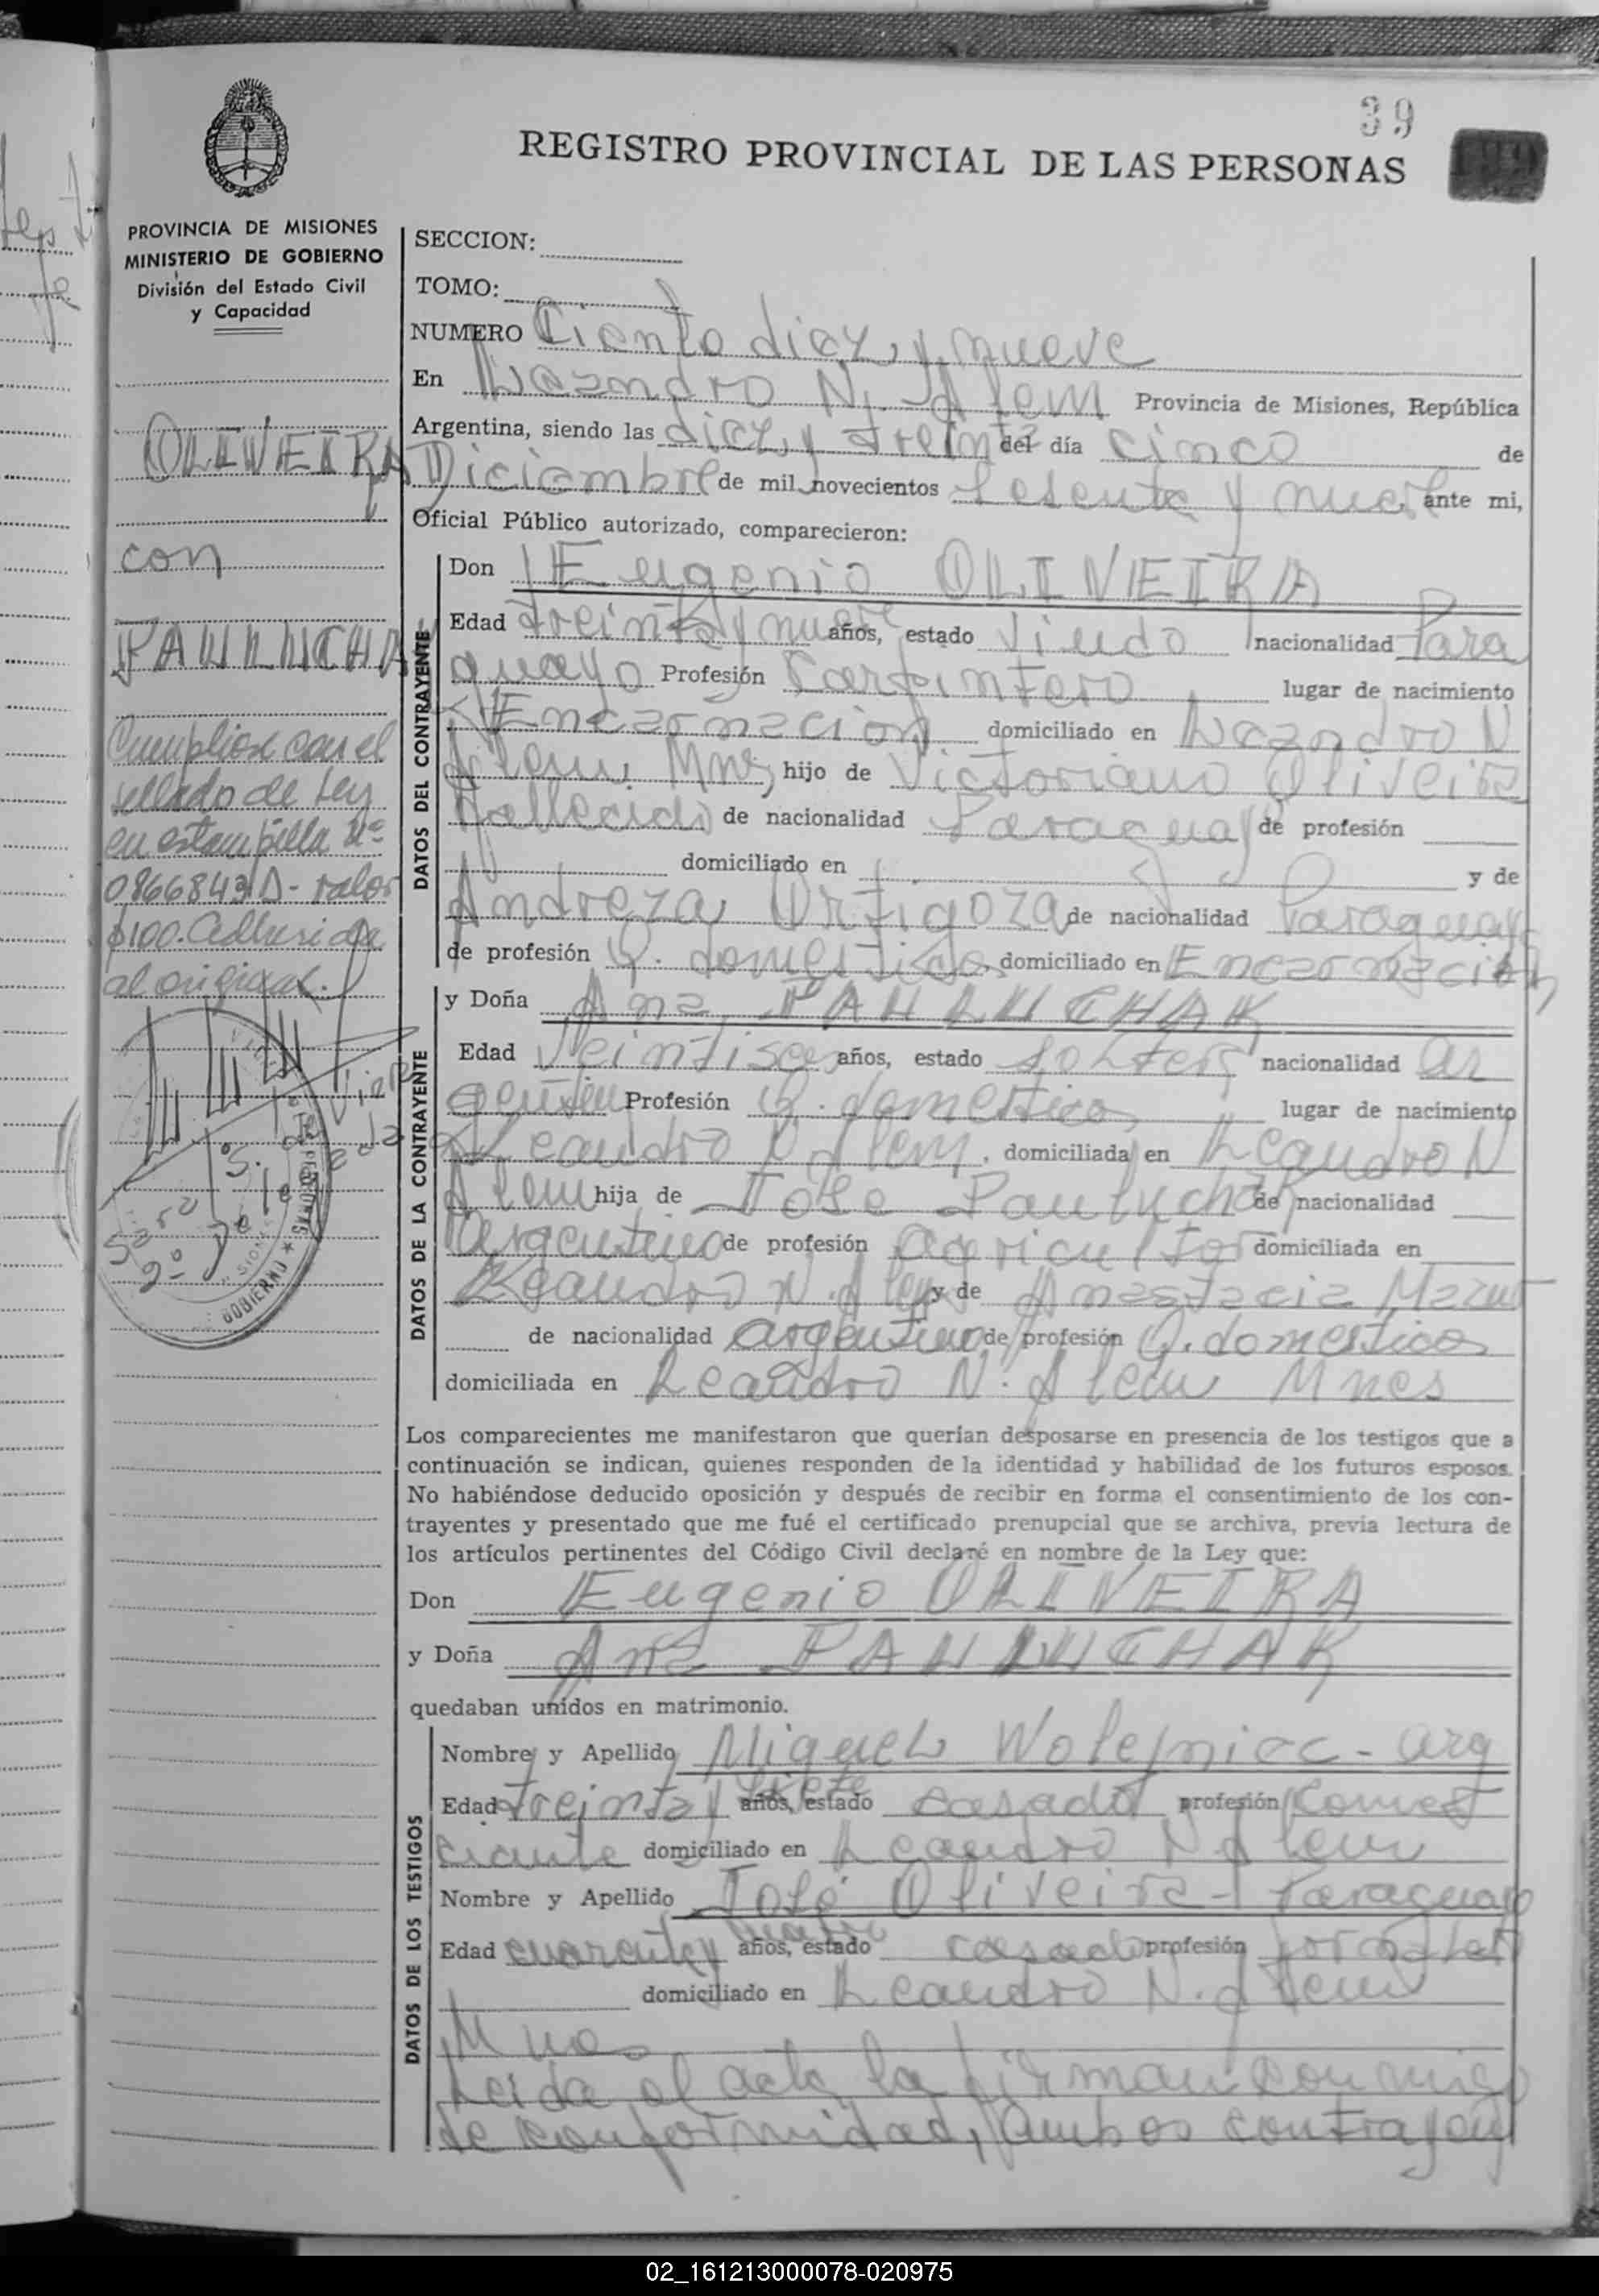 39
REGISTRO PROVINCIAL DE LAS PERSONAS
PROVINCIA DE MISIONES
MINISTERIO DE GOBIERNO
División del Estado Civil
y Capacidad
OLIVEIRA
con
PAULUCHAK
Cumpliose con el
sellado de Ley
en estampilla Nº
0866843 D - valor
$100. Adherida
al original.
GOBIERNO
SECCION:
TOMO:
NUMERO Ciento diez y nueve
En Leandro N. Alem Provincia de Misiones, República
Argentina, siendo las diez y treinta del día cinco de
Diciembre de mil novecientos sesenta y nueve ante mi,
Oficial Público autorizado, comparecieron:
DATOS DEL CONTRAYENTE
Don Eugenio OLIVEIRA
Edad treinta y nueve años, estado viudo nacionalidad Para
guayo Profesión Carpintero lugar de nacimiento
Encarnación domiciliado en Leandro N
Alem, Mnes, hijo de Victoriano Oliveira
fallecido de nacionalidad Paraguay de profesión
domiciliado en y de
Andreza Ortigoza de nacionalidad Paraguay
de profesión Q. domesticos, domiciliado en Encarnación
DATOS DE LA CONTRAYENTE
y Doña Ana PAULUCHAK
Edad años, estado soltera nacionalidad ar
gentina Profesión Q. domesticos lugar de nacimiento
Leandro N Alem, domiciliada en Leandro N
Alem hija de José Pauluchak de nacionalidad
argentino de profesión agricultor domiciliada en
Leandro N. Alem y de Anastacia
de nacionalidad argentina de profesión Q. domesticos
domiciliada en Leandro N. Alem Mnes
Los comparecientes me manifestaron que querían desposarse en presencia de los testigos que a
continuación se indican, quienes responden de la identidad y habilidad de los futuros esposos.
No habiéndose deducido oposición y después de recibir en forma el consentimiento de los con-
trayentes y presentado que me fué el certificado prenupcial que se archiva, previa lectura de
los artículos pertinentes del Código Civil declaré en nombre de la Ley que:
Don Eugenio OLIVEIRA
y Doña Ana PAULUCHAK
quedaban unidos en matrimonio.
DATOS DE LOS TESTIGOS
Nombre y Apellido Miguel Wolejniec - arg
Edad treinta y siete años, estado casado profesión comer
ciante domiciliado en Leandro N Alem
Nombre y Apellido José Oliveira - Paraguayo
Edad cuarenta y años, estado casado profesión jornalero
domiciliado en Leandro N. Alem
Mnes
Leida el acta la firman conmigo
de conformidad, ambos contrayen
02_161213000078-020975